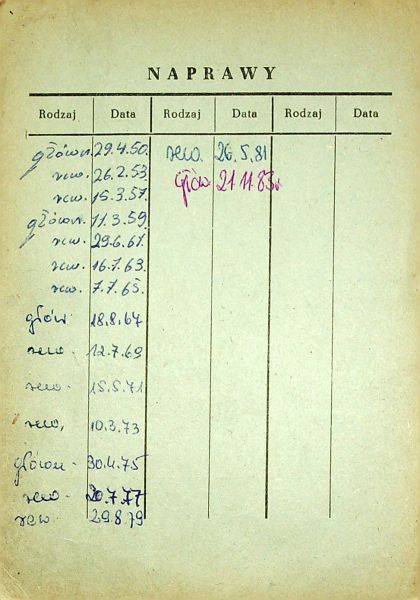 NAPRAWY
Rodzaj Data Rodzaj Data Rodzaj Data
główn. 29.4.50. rew. 26.5.81
rew. 26.2.53. głów 21.11.83r.
rew. 15.3.57.
główn. 11.3.59.
rew. 29.6.61.
rew. 16.7.63.
rew. 7.7.65.
głów 18.8.67
rew. 12.7.69
rew. 15.5.71
rew. 10.3.73
główn. 30.4.75
rew. 20.7.77
rew 29.8.79